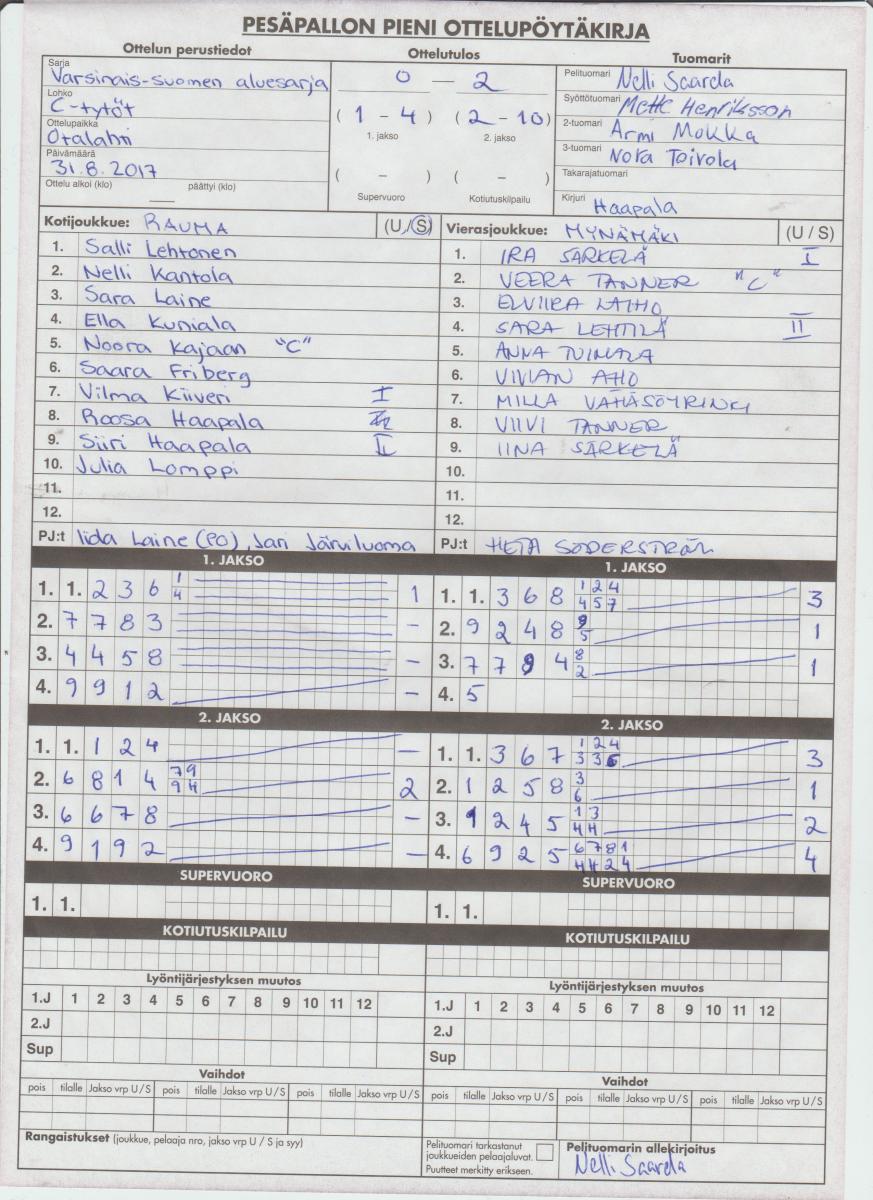 PESÄPALLON PIENI OTTELUPÖYTÄKIRJA
Ottelun perustiedot
Ottelutulos
Tuomarit
Sarja
Varsinais-suomen aluesarja
Lohko
C-tytöt
Ottelupaikka
Otalahti
Päivämäärä
31.8.2017
Ottelu alkoi (klo) päättyi (klo)
0 — 2
( 1 - 4 ) ( 2 - 10 )
1. jakso 2. jakso
( - ) ( - )
Supervuoro Kotiutuskilpailu
Pelituomari Nelli Saarela
Syöttötuomari Mette Henriksson
2-tuomari Armi Mokka
3-tuomari Nora Toivola
Takarajatuomari
Kirjuri Haapala
Kotijoukkue: RAUMA (U/S)
1. Salli Lehtonen
2. Nelli Kantola
3. Sara Laine
4. Ella Kuniala
5. Noora Kajaan "C"
6. Saara Friberg
7. Vilma Kiiveri I
8. Roosa Haapala
9. Siiri Haapala II
10. Julia Lomppi
11.
12.
PJ:t Iida Laine (PO), Jari Järviluoma
Vierasjoukkue: MYNÄMÄKI (U / S)
1. IRA SÄRKELÄ I
2. VEERA TANNER "C"
3. ELVIIRA LAIHO
4. SARA LEHTILÄ II
5. ANNA TUIMALA
6. VIVIAN AHO
7. MILLA VÄHÄSÖYRINKI
8. VIIVI TANNER
9. IINA SÄRKELÄ
10.
11.
12.
PJ:t HETA SÖDERSTRÖM
1. JAKSO
1. 1. 2 3 6 1 4 1
2. 7 7 8 3 -
3. 4 4 5 8 -
4. 9 9 1 2 -
1. JAKSO
1. 1. 3 6 8 1 2 4 4 5 7 3
2. 9 2 4 8 9 5 1
3. 7 7 9 4 8 2 1
4. 5
2. JAKSO
1. 1. 1 2 4 -
2. 6 8 1 4 7 9 9 4 2
3. 6 6 7 8 -
4. 9 1 9 2 -
2. JAKSO
1. 1. 3 6 7 1 2 4 3 3 6 3
2. 1 2 5 8 3 6 1
3. 1 2 4 5 1 3 4 4 2
4. 6 9 2 5 6 7 8 1 4 4 2 4 4
SUPERVUORO
1. 1.
SUPERVUORO
1. 1.
KOTIUTUSKILPAILU
KOTIUTUSKILPAILU
Lyöntijärjestyksen muutos
1.J 1 2 3 4 5 6 7 8 9 10 11 12
2.J
Sup
Lyöntijärjestyksen muutos
1.J 1 2 3 4 5 6 7 8 9 10 11 12
2.J
Sup
Vaihdot
pois tilalle Jakso vrp U/S pois tilalle Jakso vrp U/S pois tilalle Jakso vrp U/S
Vaihdot
pois tilalle Jakso vrp U/S pois tilalle Jakso vrp U/S pois tilalle Jakso vrp U/S
Rangaistukset (joukkue, pelaaja nro, jakso vrp U / S ja syy)
Pelituomari tarkastanut
joukkueiden pelaajaluvat.
Puutteet merkitty erikseen.
Pelituomarin allekirjoitus
Nelli Saarela